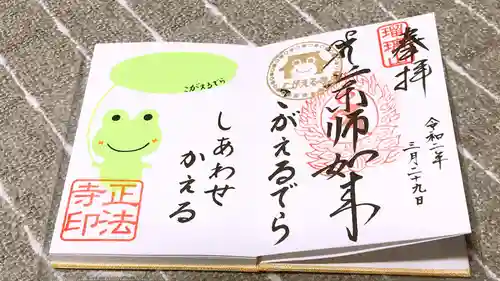 奉拝
令和二年
三月二十九日
薬師如来
こがえるでら
瑠璃山
こがえるでら
しあわせ
かえる
正法
寺印